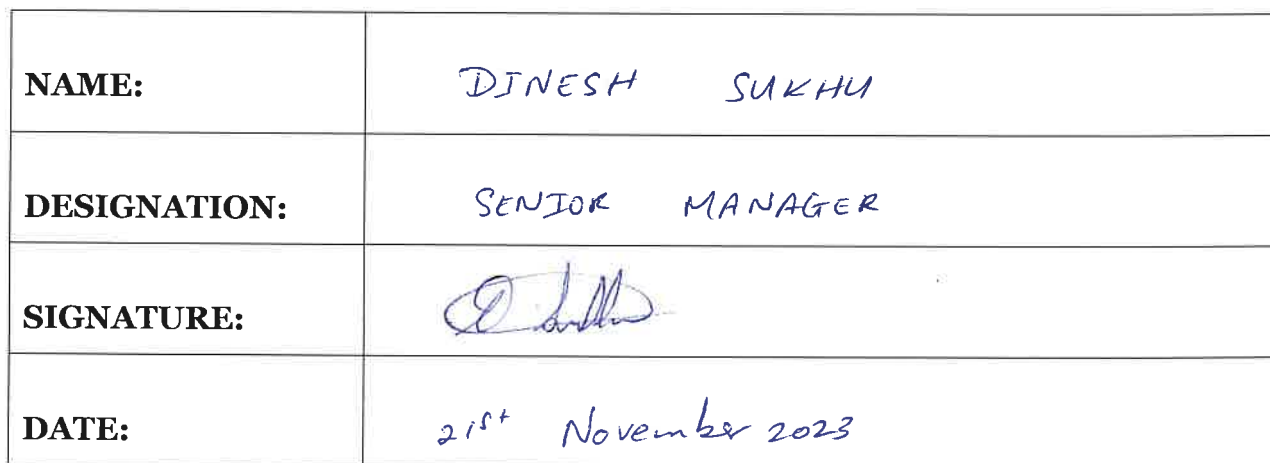 NAME: DINESH SUKHU
DESIGNATION: SENIOR MANAGER
SIGNATURE:
DATE: 21st November 2023